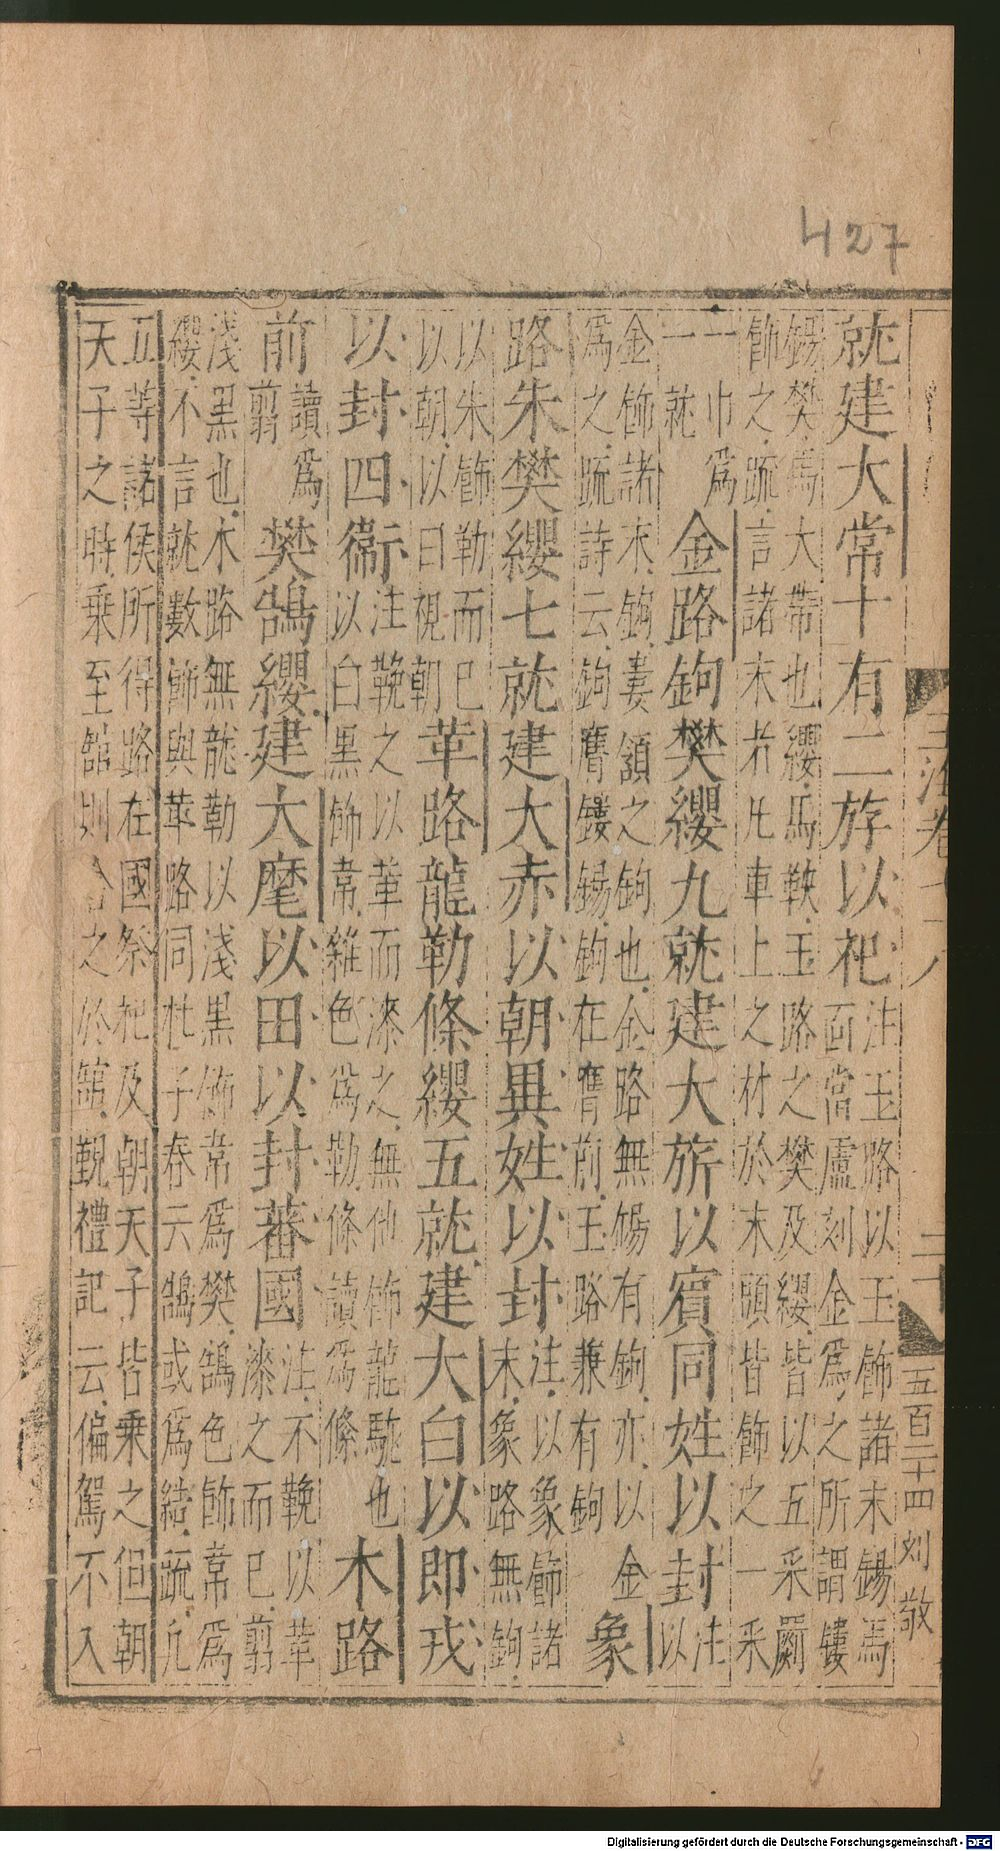 卷
二十
五百二十四
刘敬
就建大常十有二斿以祀
注玉路以玉飾諸末錫馬
面當盧刻金爲之所謂鏤
錫樊馬大帶也纓馬鞅玉路之樊及纓皆以五采罽
飾之疏言諸末者凡車上之材於末頭皆飾之一采
一巾爲
一就
金路鉤樊纓九就建大旂以賓同姓以封
注
以
金飾諸末鉤婁頷之鉤也金路無錫有鉤亦以金
爲之疏詩云鉤膺鏤錫鉤在膺前玉路兼有鉤
象
路朱樊纓七就建大赤以朝異姓以封
注以象飾諸
末象路無鉤
以朱飾勒而已
以朝以日視朝
革路龍勒條纓五就建大白以即戎
以封四衞
注鞔之以革而漆之無他飾龍駹也
以白黑飾韋雜色爲勒條讀爲絛
木路
前
讀爲
翦
樊鵠纓建大麾以田以封蕃國
注不鞔以革
漆之而已翦
淺黑也木路無龍勒以淺黑飾韋爲樊鵠色飾韋爲
纓不言就數飾與革路同杜子春云鵠或爲結疏凡
五等諸侯所得路在國祭祀及朝天子皆乘之但朝
天子之時乘至館則舍之於館覲禮記云偏駕不入
427
Digitalisierung gefördert durch die Deutsche Forschungsgemeinschaft - DFG